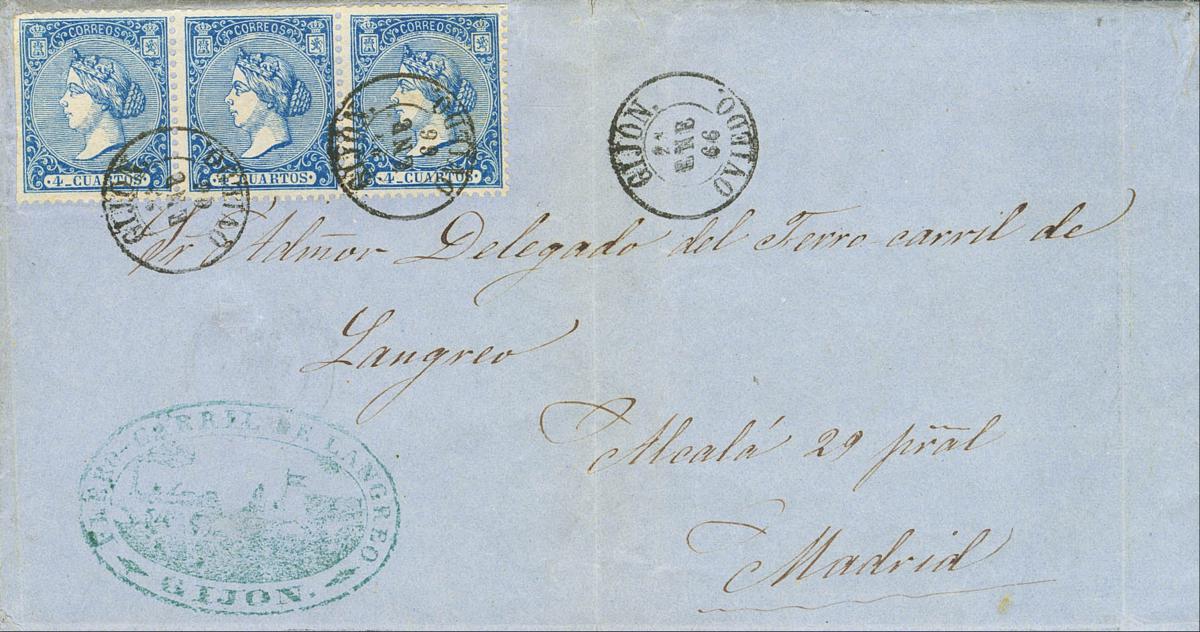 CORREOS CORREOS CORREOS
4_CUARTOS 4_CUARTOS 4_CUARTOS
GIJON. OVIEDO.
ENE
66
GIJON. OVIEDO.
ENE
66
GIJON. OVIEDO.
ENE
66
Sr Admõor Delegado del Ferro-carril de
Langreo
Alcalá 29 pr̃al
Madrid
FERRO-CARRIL DE LANGREO
GIJON.